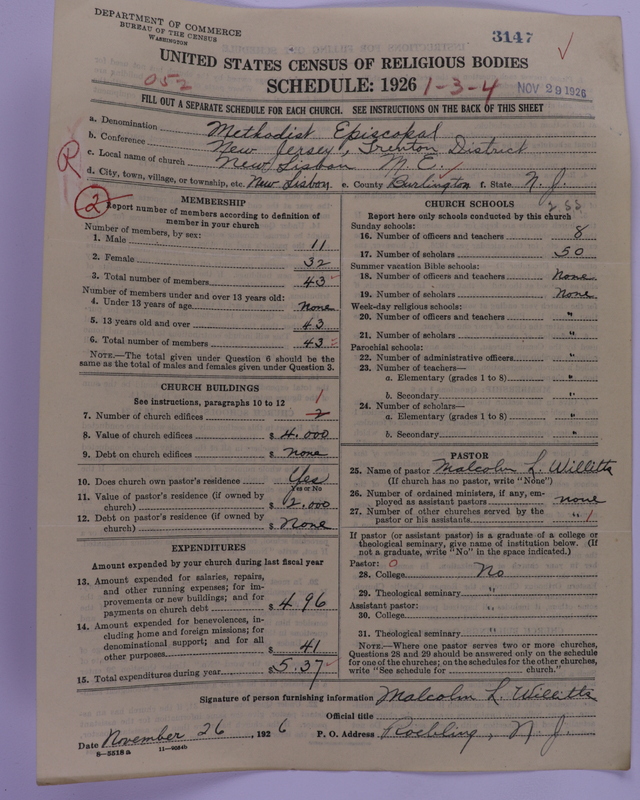 DEPARTMENT OF COMMERCE
BUREAU OF THE CENSUS
WASHINGTON
3147
UNITED STATES CENSUS OF RELIGIOUS BODIES
052
SCHEDULE: 1926 1-3-4 NOV 29 1926
FILL OUT A SEPARATE SCHEDULE FOR EACH CHURCH. SEE INSTRUCTIONS ON THE BACK OF THIS SHEET
a. Denomination Methodist Episcopal
b. Conference New Jersey, Trenton District
c. Local name of church New Lisbon M. E.
d. City, town, village, or township, etc. New Lisbon e. County Burlington f. State N. J.
R
2
MEMBERSHIP
Report number of members according to definition of
member in your church
Number of members, by sex:
1. Male 11
2. Female 32
3. Total number of members 43
Number of members under and over 13 years old:
4. Under 13 years of age none
5. 13 years old and over 43
6. Total number of members 43
NOTE.—The total given under Question 6 should be the
same as the total of males and females given under Question 3.
CHURCH BUILDINGS
See instructions, paragraphs 10 to 12
1
7. Number of church edifices 2
8. Value of church edifices $ 4.000
9. Debt on church edifices $ none
10. Does church own pastor's residence Yes
Yes or No
11. Value of pastor's residence (if owned by
church) $ 2.000
12. Debt on pastor's residence (if owned by
church) $ None
EXPENDITURES
Amount expended by your church during last fiscal year
13. Amount expended for salaries, repairs,
and other running expenses; for im-
provements or new buildings; and for
payments on church debt $ 4.96
14. Amount expended for benevolences, in-
cluding home and foreign missions; for
denominational support; and for all
other purposes $ 41
15. Total expenditures during year $ 5.37
CHURCH SCHOOLS
Report here only schools conducted by this church
Sunday schools:
16. Number of officers and teachers 8
17. Number of scholars 50
Summer vacation Bible schools:
18. Number of officers and teachers None
19. Number of scholars None
Week-day religious schools:
20. Number of officers and teachers "
21. Number of scholars "
Parochial schools:
22. Number of administrative officers "
23. Number of teachers—
a. Elementary (grades 1 to 8) "
b. Secondary "
24. Number of scholars—
a. Elementary (grades 1 to 8) "
b. Secondary "
PASTOR
25. Name of pastor Malcolm L. Willitts
(If church has no pastor, write "None")
26. Number of ordained ministers, if any, em-
ployed as assistant pastors none
27. Number of other churches served by the
pastor or his assistants " 1
If pastor (or assistant pastor) is a graduate of a college or
theological seminary, give name of institution below. (If
not a graduate, write "No" in the space indicated.)
Pastor: 0
28. College No
29. Theological seminary "
Assistant pastor:
30. College "
31. Theological seminary "
NOTE.—Where one pastor serves two or more churches,
Questions 28 and 29 should be answered only on the schedule
for one of the churches; on the schedules for the other churches,
write "See schedule for church."
Signature of person furnishing information Malcolm L. Willitts
Official title
Date November 26, 1926 P. O. Address Roebling, N. J.
8-5518a 11-9064b